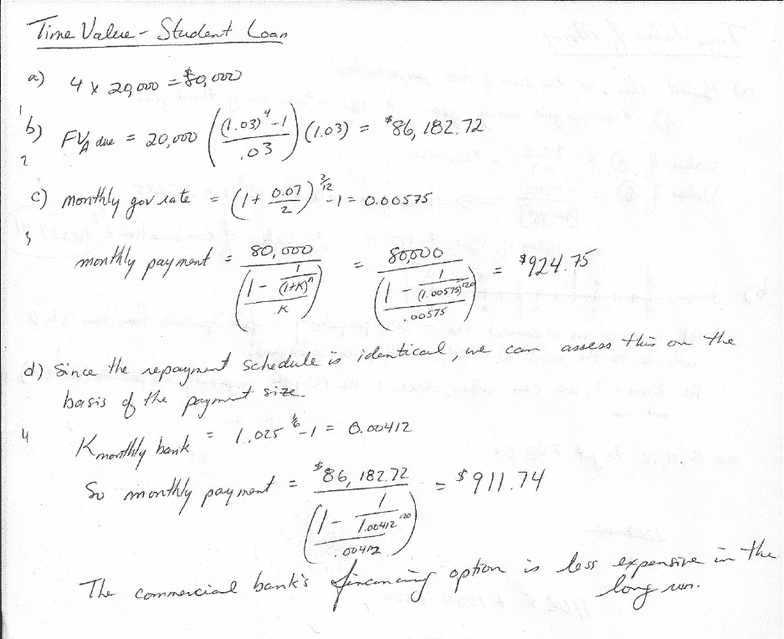 Time Value - Student Loan
a) 4 x 20,000 = $80,000
1
b) FVA due = 20,000 ( ((1.03)^4 - 1) / .03 ) (1.03) = $86,182.72
2
c) monthly gov rate = (1 + 0.07/2)^(2/12) - 1 = 0.00575
3
monthly payment = 80,000 / ( (1 - 1/(1+K)^n) / K ) = 80,000 / ( (1 - 1/(1.00575)^120) / .00575 ) = $924.75
d) Since the repayment schedule is identical, we can assess this on the
basis of the payment size.
4
K monthly bank = 1.025^(1/6) - 1 = 0.00412
So monthly payment = $86,182.72 / ( (1 - 1/1.00412^120) / .00412 ) = $911.74
The commercial bank's financing option is less expensive in the
long run.